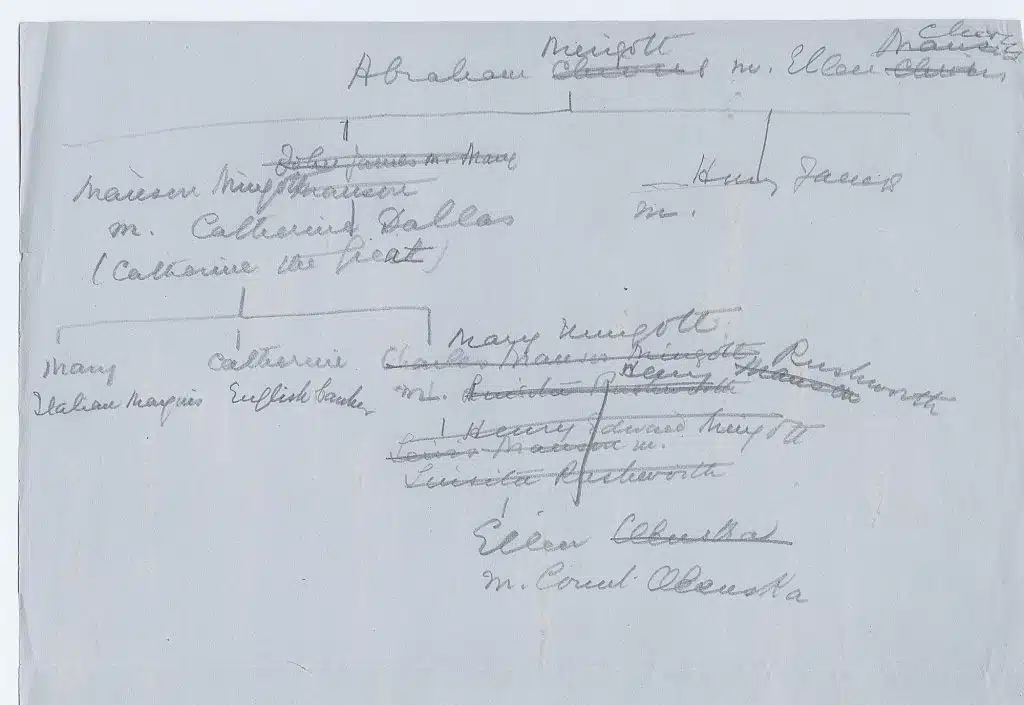 Mingott Chivers
Abraham Chivers m. Ellen Manson Chivers
John James m. Mary
Manson Mingott Manson
m. Catherine Dallas
(Catherine the Great)
Henry James
m.
Mary Mingott
Mary Catherine Charles Manson Mingott Rushworth
Italian Marquis English banker m. Luisita Rushworth Henry Manson
1 Henry Edward Mingott
Louis Manson m.
Luisita Rushworth
Ellen Olenska
m. Count Olenska